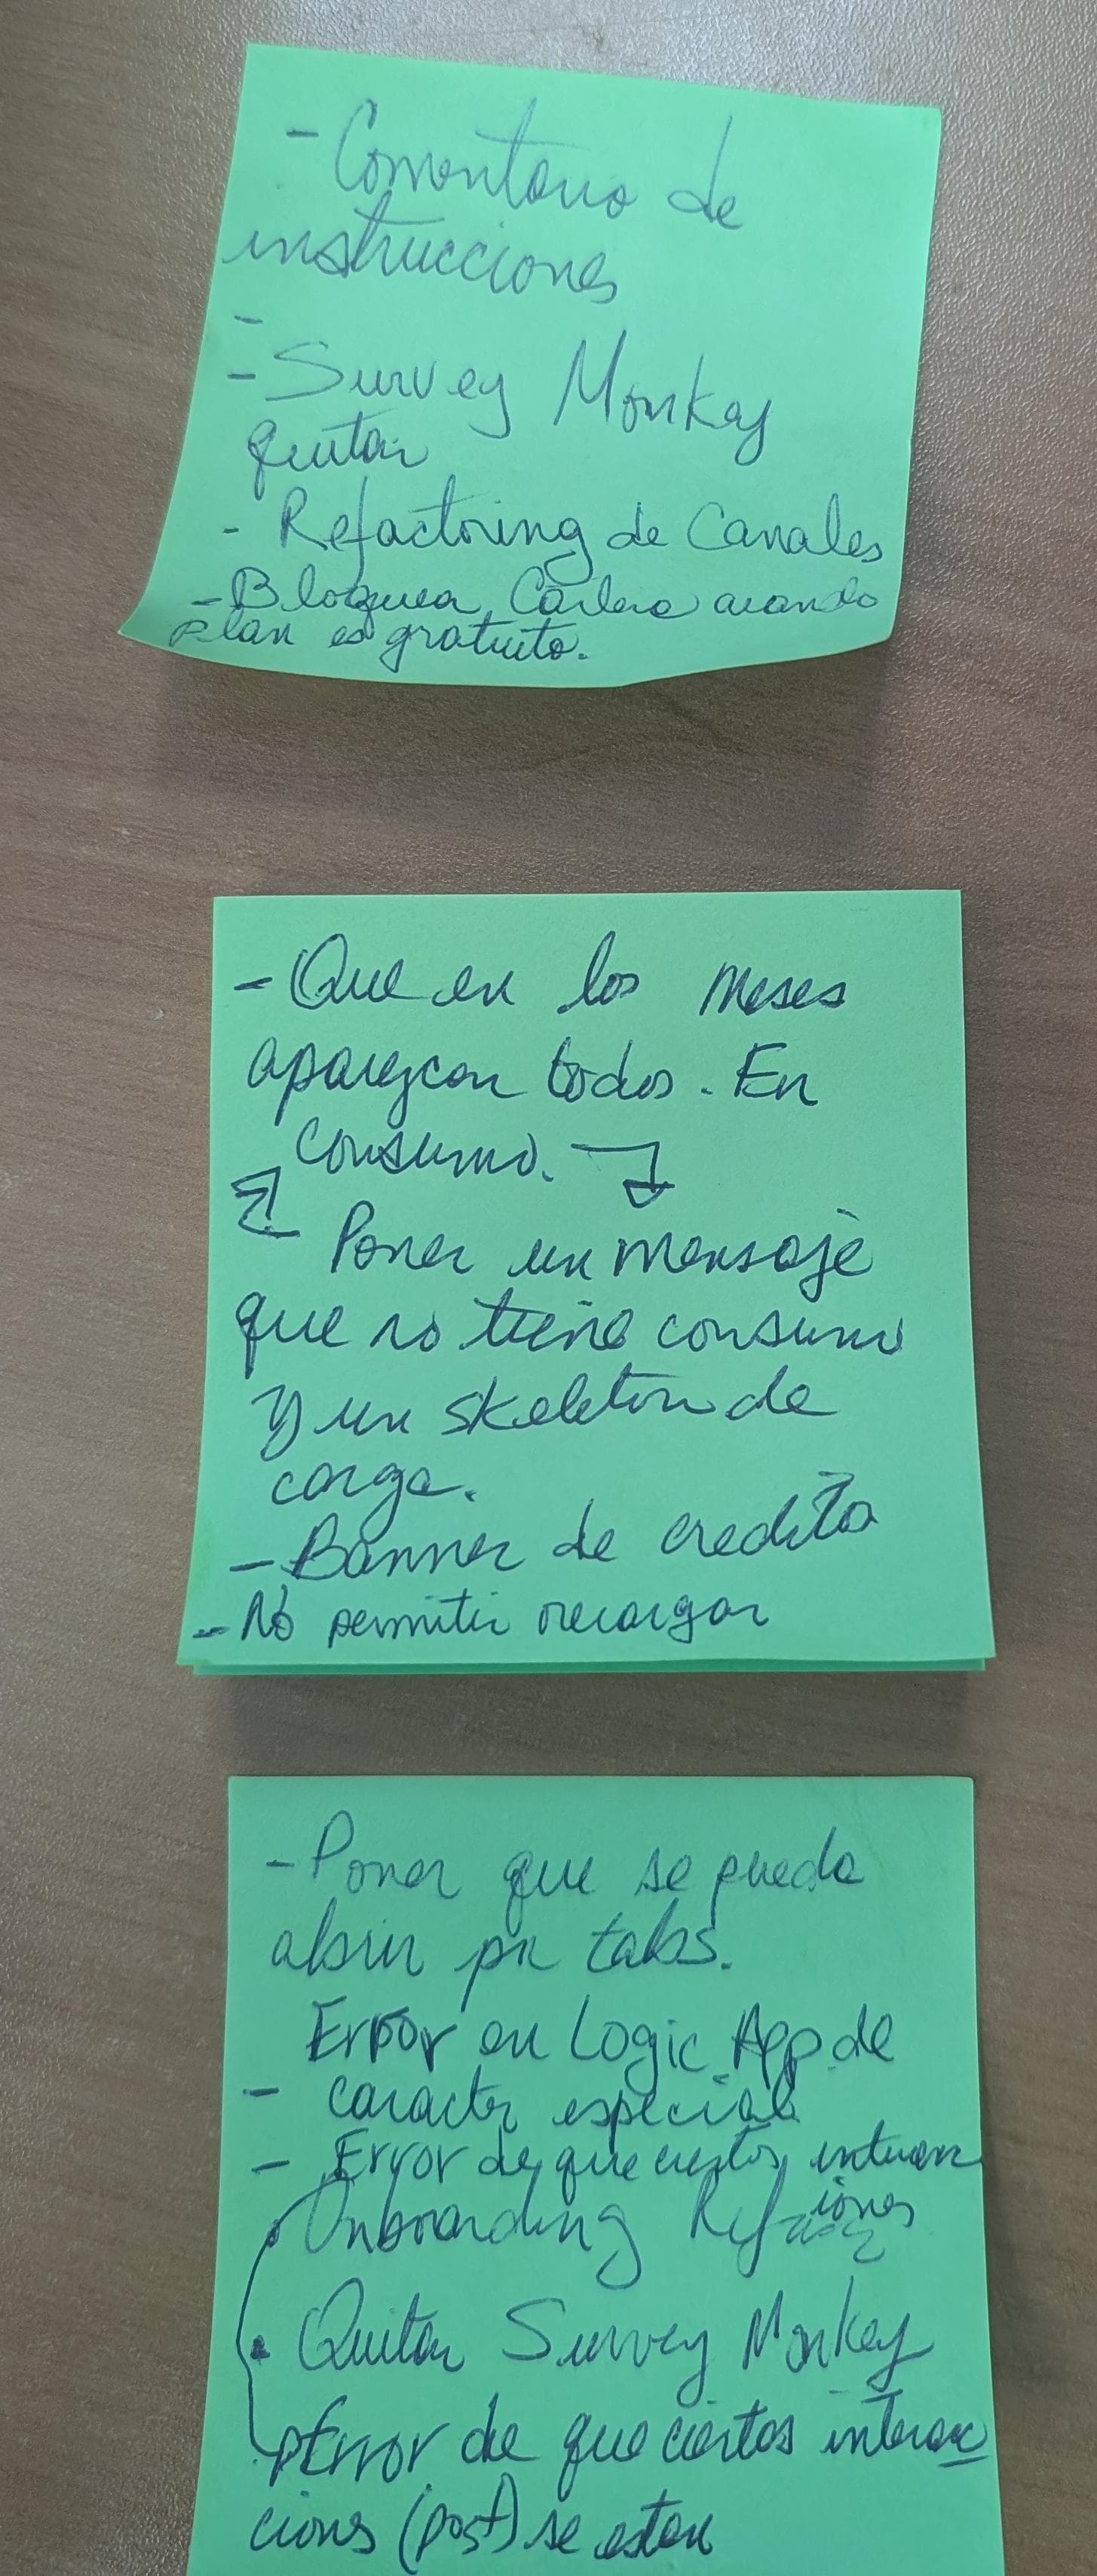 - Comentario de
instrucciones
-
- Survey Monkey
quitar
- Refactoring de Canales
- Bloquea cuando
plan es gratuito.
- Que en los meses
aparezcan todos. En
consumo.
Poner un mensaje
que no tiene consumo
y un skeleton de
carga.
- Banner de credito
- No permitir recargar
- Poner que se pueda
abrir por tabs.
Error en Logic App de
- caracter especial
- Error de que ciertos interac
iones
Onboarding
Quitar Survey Monkey
Error de que ciertos interac
ciones (post) se estan